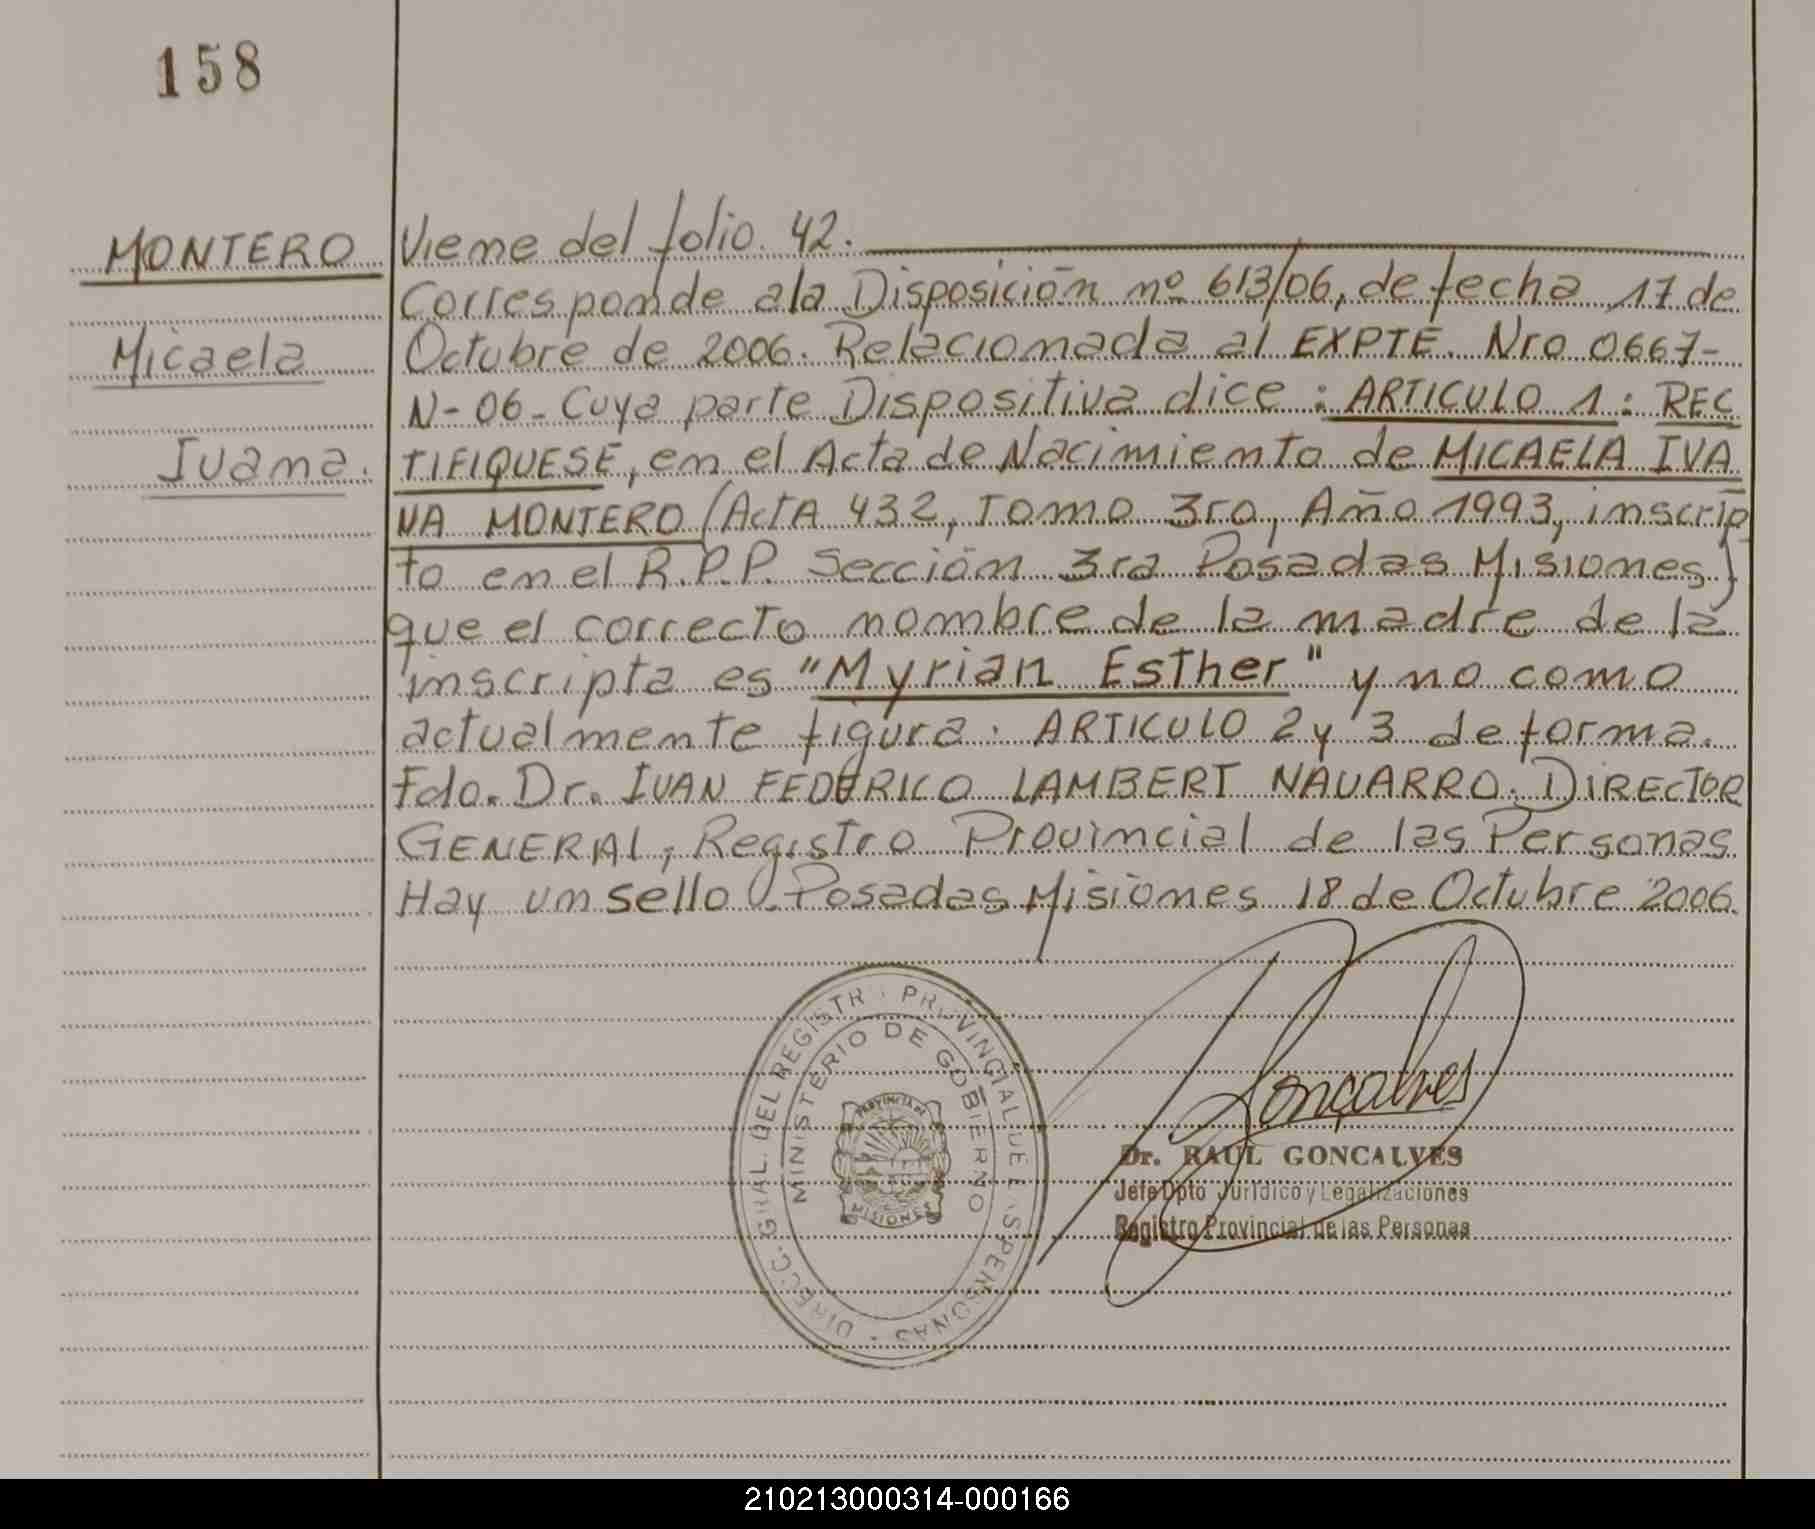 158
MONTERO
Micaela
Ivana.
Viene del folio. 42.
Corresponde a la Disposición nº 613/06, de fecha 17 de
Octubre de 2006. Relacionada al EXPTE. Nro 0667-
N-06- Cuya parte Dispositiva dice : ARTICULO 1 : REC
TIFIQUESE, en el Acta de Nacimiento de MICAELA IVA
NA MONTERO (Acta 432, Tomo 3ro, Año 1993, inscrip
to en el R.P.P. Sección 3ra Posadas Misiones)
que el correcto nombre de la madre de la
inscripta es "Myrian Esther" y no como
actualmente figura. ARTICULO 2 y 3 de forma.
Fdo. Dr. IVAN FEDERICO LAMBERT NAVARRO. DIRECTOR
GENERAL, Registro Provincial de las Personas
Hay un sello. Posadas Misiones 18 de Octubre 2006.
DIRECC. GRAL. DEL REGISTRO PROVINCIAL DE LAS PERSONAS
MINISTERIO DE GOBIERNO
PROVINCIA DE
MISIONES
Gonçalves
Dr. RAUL GONCALVES
Jefe Dpto Jurídico y Legalizaciones
Registro Provincial de las Personas
210213000314-000166